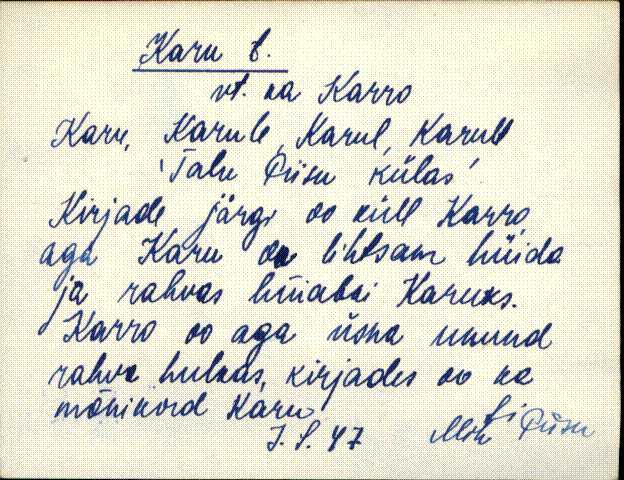 Karu t.
vt. ka Karro
Karu, Karule, Karul, Karult
'Talu Piisu külas'
Kirjade järgi oo küll Karro
aga Karu oo lihtsam hüida
ja rahvas hüiabki Karuks.
Karro oo aga üsna unund
rahva hulkas, kirjades oo ka
mõnikord Karu
J. S. 47
Piisu